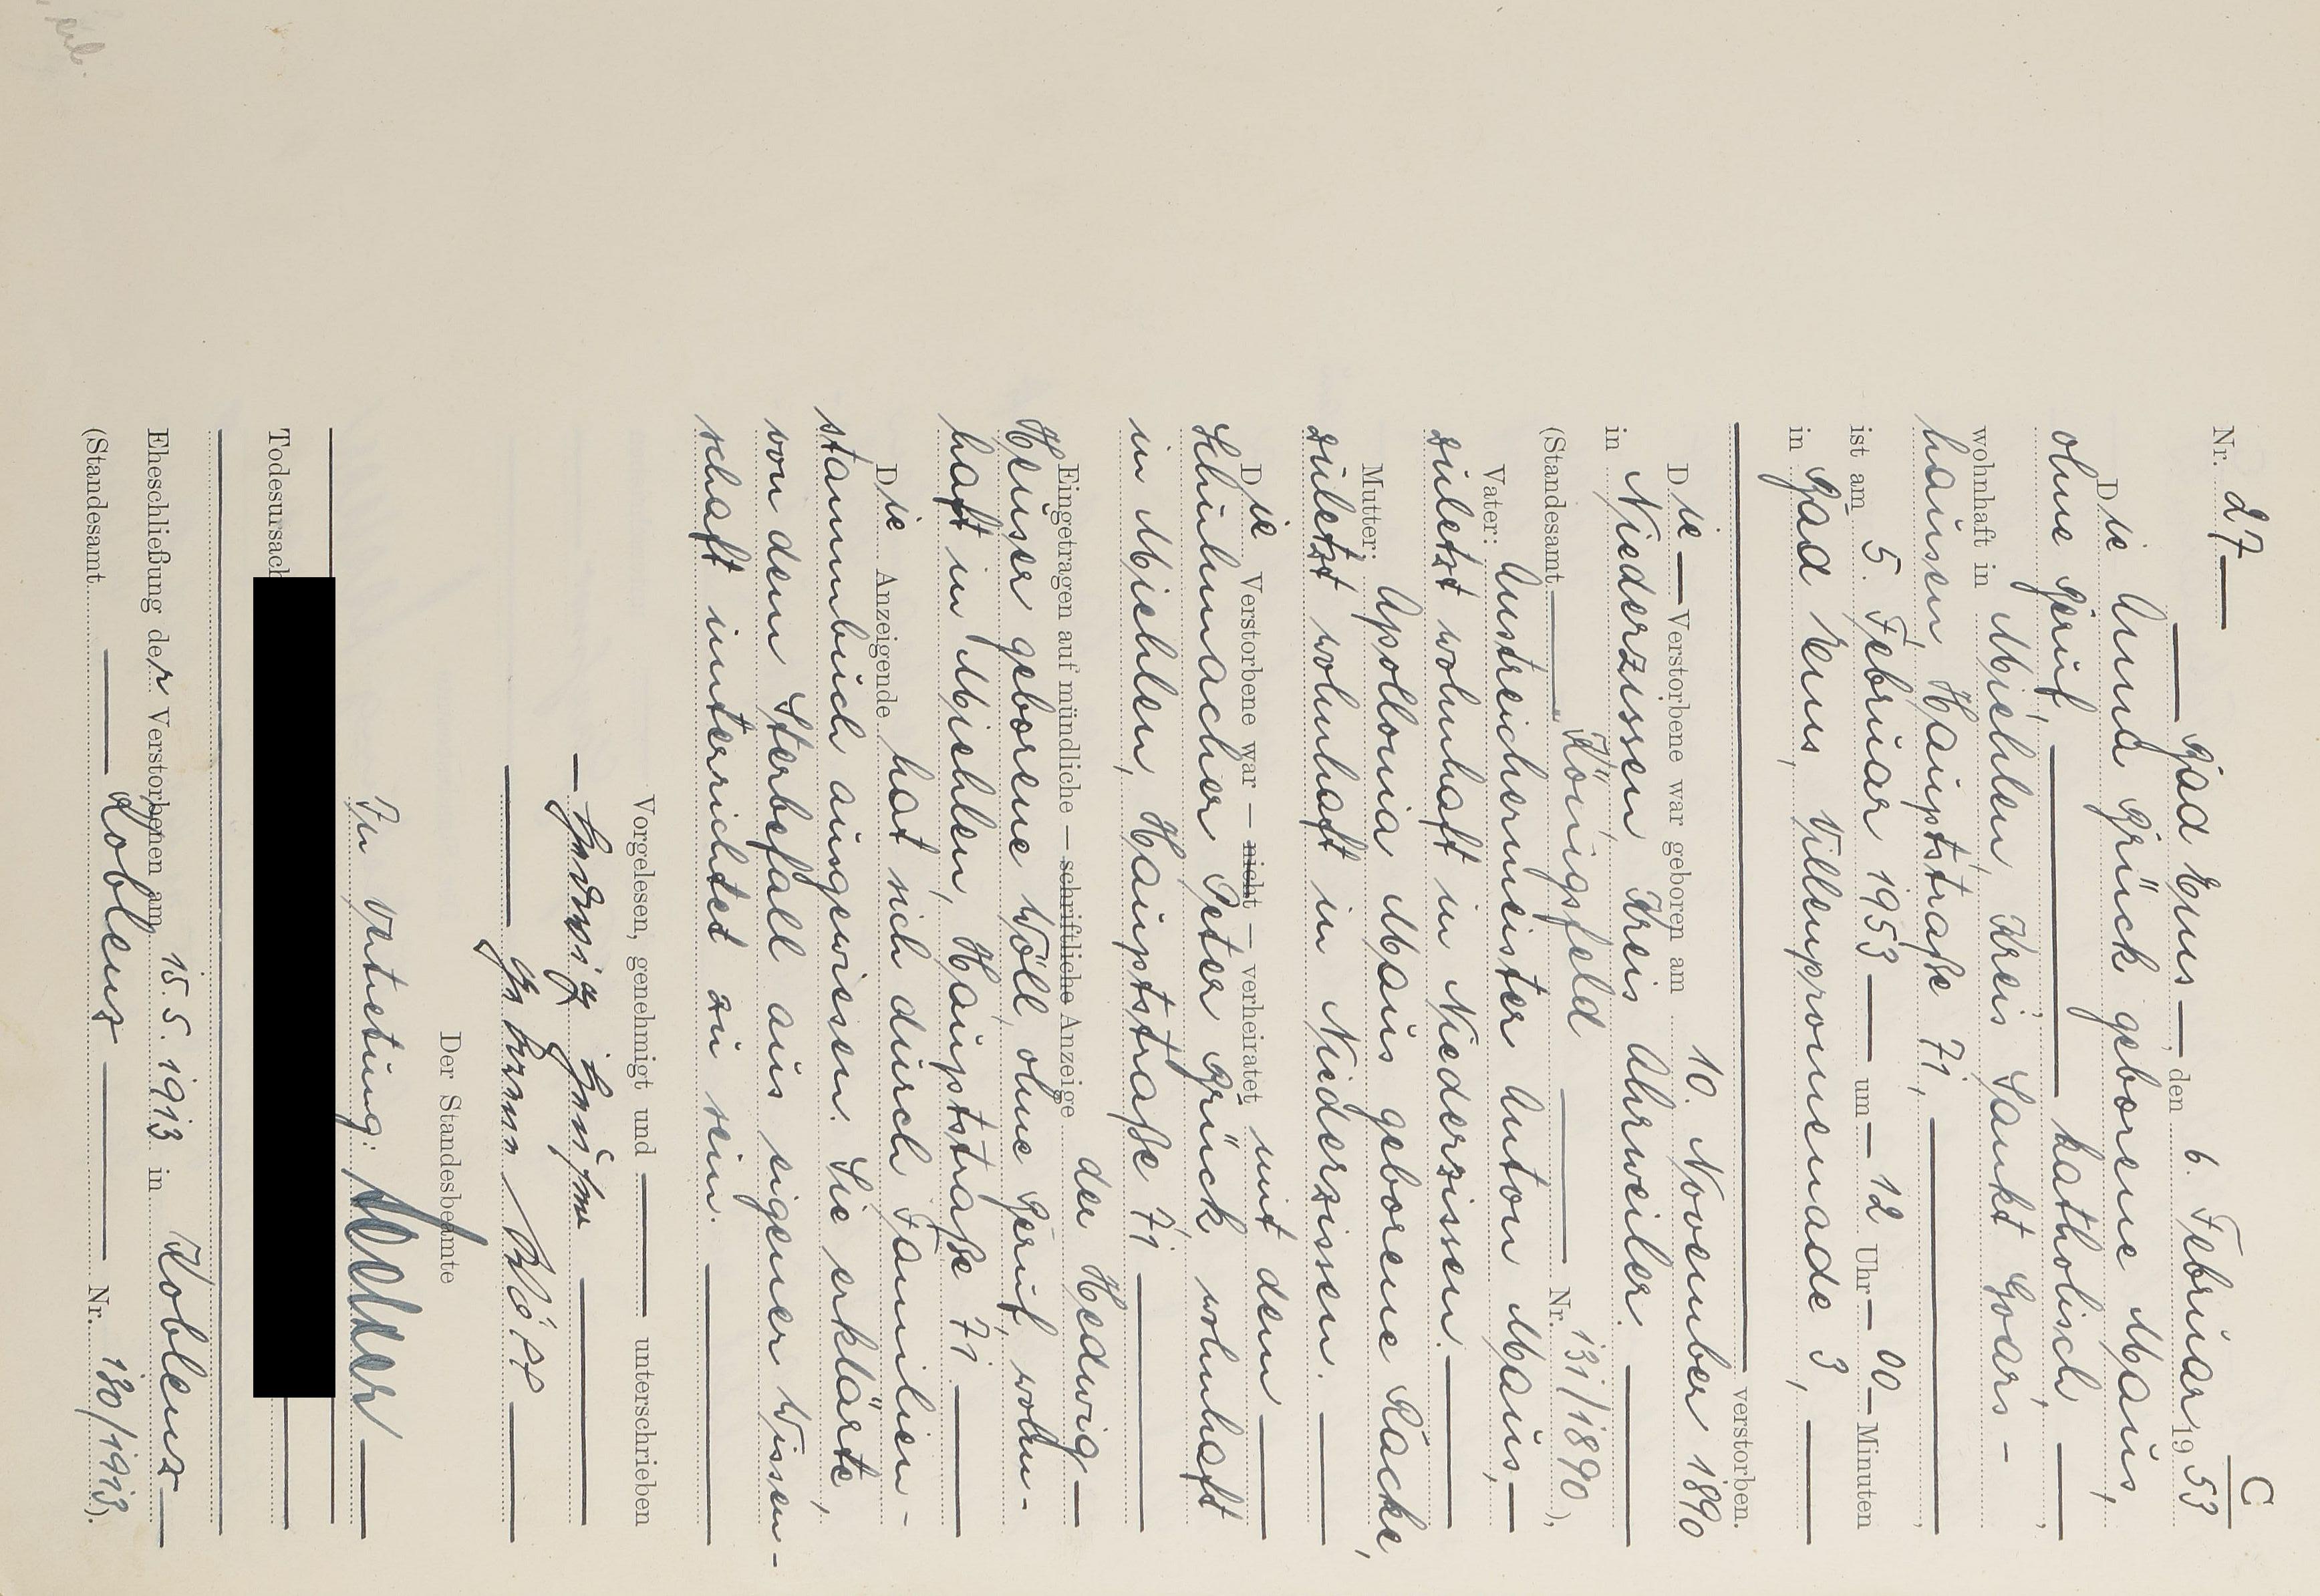 C
Nr. 27
Bad Ems, den 6. Februar 1953
Die Anna Brück geborene Maus,
ohne Beruf, katholisch,
wohnhaft in Miehlen, Kreis Sankt Goars-
hausen, Hauptstraße 71,
ist am 5. Februar 1953 um 12 Uhr 00 Minuten
in Bad Ems, Villenpromenade 3,
verstorben.
Die Verstorbene war geboren am 10. November 1890
in Niederzissen Kreis Ahrweiler.
(Standesamt Königsfeld Nr. 131/1890),
Vater: Anstreichermeister Anton Maus,
zuletzt wohnhaft in Niederzissen.
Mutter: Apollonia Maus geborene Racke,
zuletzt wohnhaft in Niederzissen.
Die Verstorbene war – nicht – verheiratet mit dem
Schuhmacher Peter Brück wohnhaft
in Miehlen, Hauptstraße 71
Eingetragen auf mündliche – schriftliche Anzeige der Hedwig
Heuser geborene Wöll, ohne Beruf, wohn-
haft in Miehlen, Hauptstraße 71.
Die Anzeigende hat sich durch Familien-
stammbuch ausgewiesen. Sie erklärte,
von dem Sterbefall aus eigener Wissen-
schaft unterrichtet zu sein.
Vorgelesen, genehmigt und unterschrieben
Hedwig Heuser
geborene Wöll
Der Standesbeamte
In Vertretung:
Todesursach
Eheschließung der Verstorbenen am 15. 5. 1913 in Koblenz
(Standesamt Koblenz Nr. 130/1913).